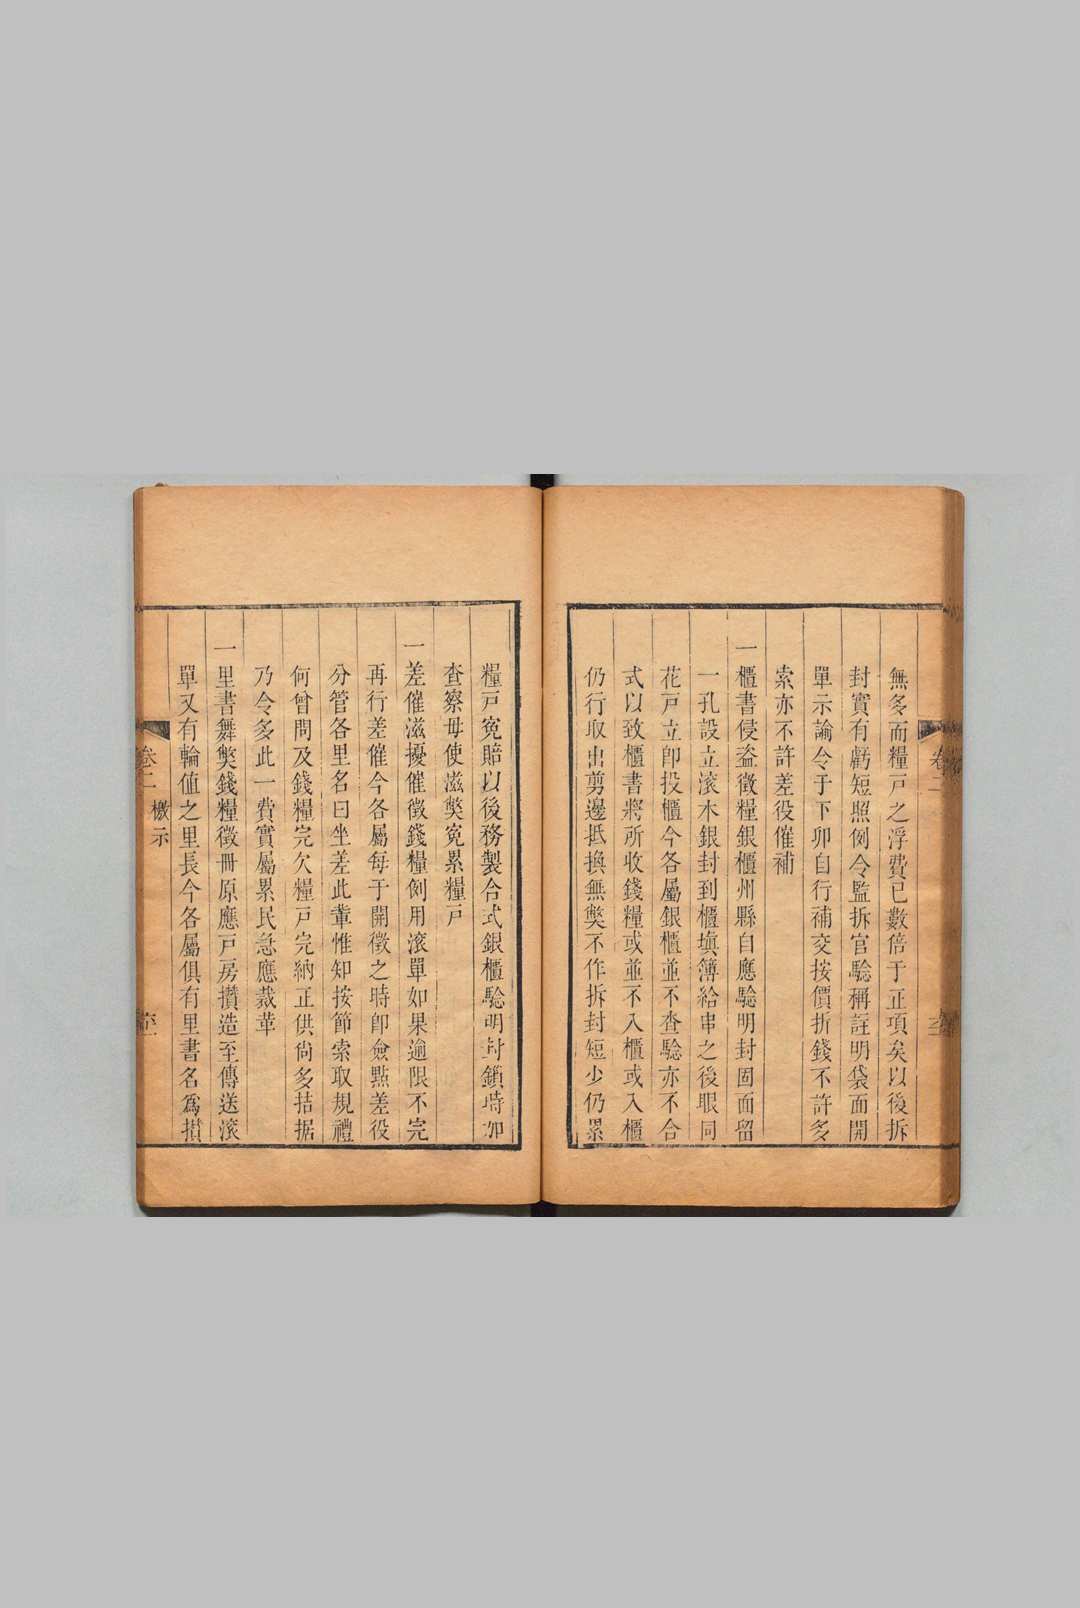 無多而糧戸之浮費已數倍于正項矣以後拆
封實有虧短照例令監拆官驗稱註明袋面開
單示諭令于下卯自行補交按價折錢不許多
索亦不許差役催補
一櫃書侵盗徵糧銀櫃州縣自應驗明封固面留
一孔設立滚木銀封到櫃填簿給串之後眼同
花戸立卽投櫃今各屬銀櫃並不查驗亦不合
式以致櫃書將所收錢糧或並不入櫃或入櫃
仍行取出剪邊抵換無獘不作拆封短少仍累
糧戸寃賠以後務製合式銀櫃驗明封鎖時加
查察毋使滋獘寃累糧戸
一差催滋擾催徵錢糧例用滚單如果逾限不完
再行差催今各屬每于開徵之時卽僉點差役
分管各里名曰坐差此輩惟知按節索取規禮
何曾問及錢糧完欠糧戸完納正供尙多拮据
乃令多此一費實屬累民急應裁革
一里書舞獘錢糧徵冊原應戸房攅造至傳送滚
單又有輪値之里長今各屬俱有里書名爲攅
卷二 檄示